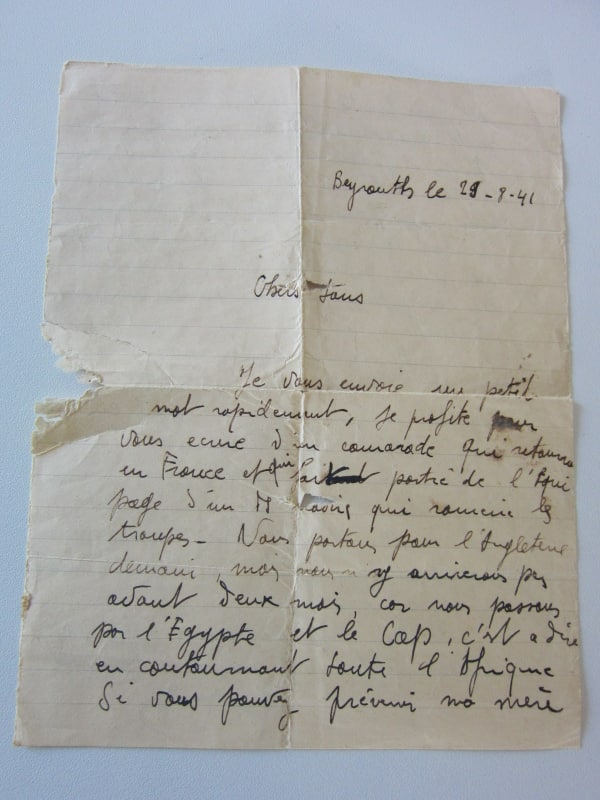 Beyrouth le 29-8-41
Chers tous
Je vous envoie un petit
mot rapidement, Je profite pour
vous ecrire d'un camarade qui retourne
en France et qui fait partie de l'équi
page d'un qui ramene les
troupes - Nous partons pour l'Angleterre
demain, mais nous n'y arriverons pas
avant deux mois, car nous passons
par l'Egypte et le Cap, c'est a dire
en contournant toute l'Afrique
Si vous pouvez prévenir ma mère